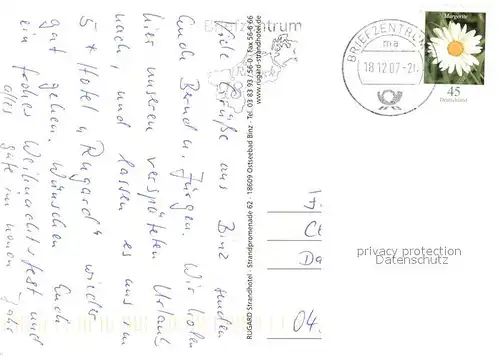 Briefzentrum
Viele Grüße aus Binz senden
Euch Bernd u. Jürgen. Wir holen
hier unseren verspäteten Urlaub
nach, und lassen es uns im
5 * Hotel "Rugard" wieder
gut gehen. Wünschen Euch
ein frohes Weihnachtsfest und
alles gute im neuen Jahr
RUGARD Strandhotel · Strandpromenade 62 · 18609 Ostseebad Binz · Tel. 03 83 93 / 56-0 · Fax 56-6 66
www.rugard-strandhotel.de
BRIEFZENTRUM
ma
18.12.07-21
Margerite
45
Deutschland
Da
04.
privacy protection
Datenschutz